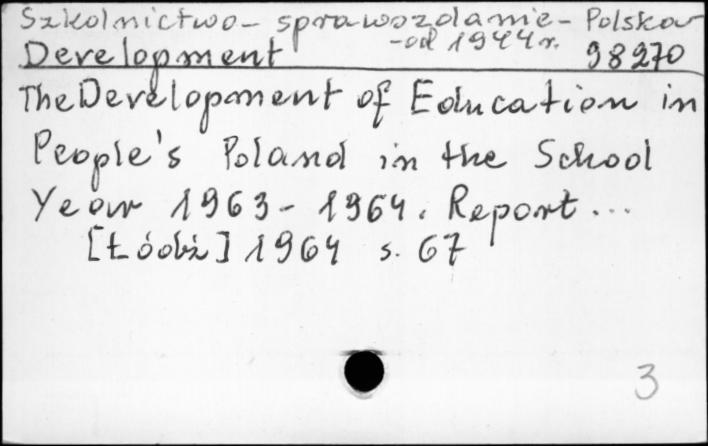 Szkolnictwo - sprawozdanie - Polska
- od 1944 r.
Development 98270
The Development of Education in
People's Poland in the School
Year 1963 - 1964. Report ...
[Łódź] 1964 s. 67
3